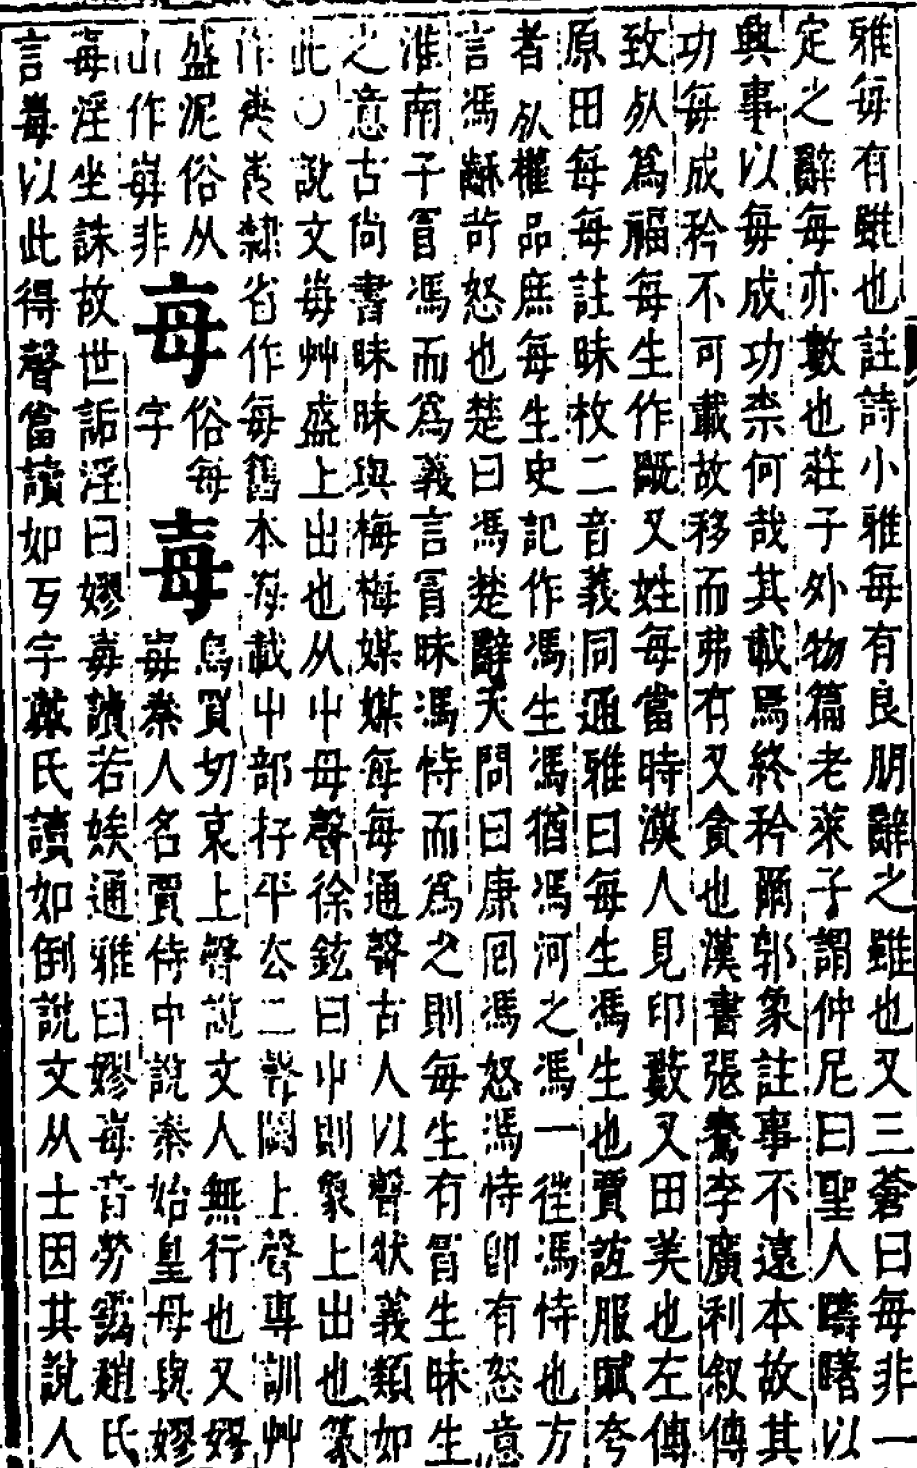 雅每有雖也註詩小雅每有良朋辭之雖也又三蒼曰每非一
定之辭每亦數也莊子外物篇老萊子謂仲尼曰聖人疇躇以
興事以每成功柰何哉其載焉終矜爾郭象註事不遠本故其
功每成矜不可載故移而弗有又貪也漢書張騫李廣利叙傳
致死爲福每生作旤又姓每當時漢人見印藪又田美也左傳
原田每每註昧枚二音義同通雅曰每生馮生也賈誼服賦夸
者死權品庶每生史記作馮生馮猶馮河之馮一往馮恃也方
言馮龢苛怒也楚曰馮楚辭天問曰康回馮怒馮恃卽有怒意
淮南子冒馮而爲義言冒昧馮恃而爲之則每生有冒生昧生
之意古尚書昧昧與梅梅媒媒每每通聲古人以聲狀義類如
此○說文每艸盛上出也从屮母聲徐鉉曰屮則象上出也篆
作隸省作每舊本每載屮部扜平公二聲闕上聲專訓艸
盛泥俗从
山作非
毐
俗每
字
毐
烏買切哀上聲說文人無行也又嫪
毐秦人名賈侍中說秦始皇母與嫪
毐淫坐誅故世詬淫曰嫪毐讀若娭通雅曰嫪毐音勞靄趙氏
言毐以此得聲當讀如丂字戴氏讀如倒說文从士因其說人